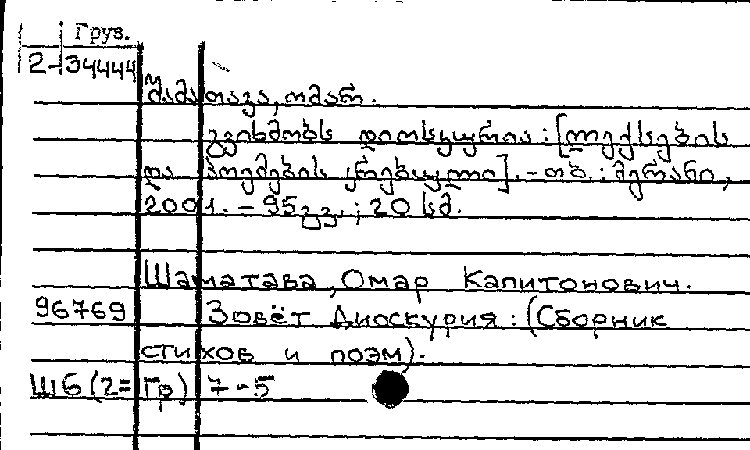 Груз.
2-34444
შამათავა, ომარ.
გვიხმობს დიოსკურია : [ლექსების
და პოემების კრებული]. - თბ. : მერანი,
2001. - 95გვ. ; 20 სმ.
Шаматава, Омар Капитонович.
96769 Зовёт Диоскурия : (Сборник
стихов и поэм).
Шб(2=Гр) 7-5